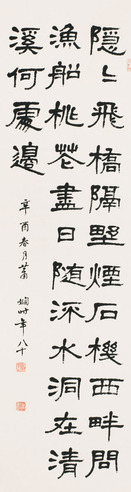 隱〻飛橋隔野煙石機西畔問
漁船桃花盡日随流水洞在清
溪何處邊
辛酉春月蕭
嫻時年八十